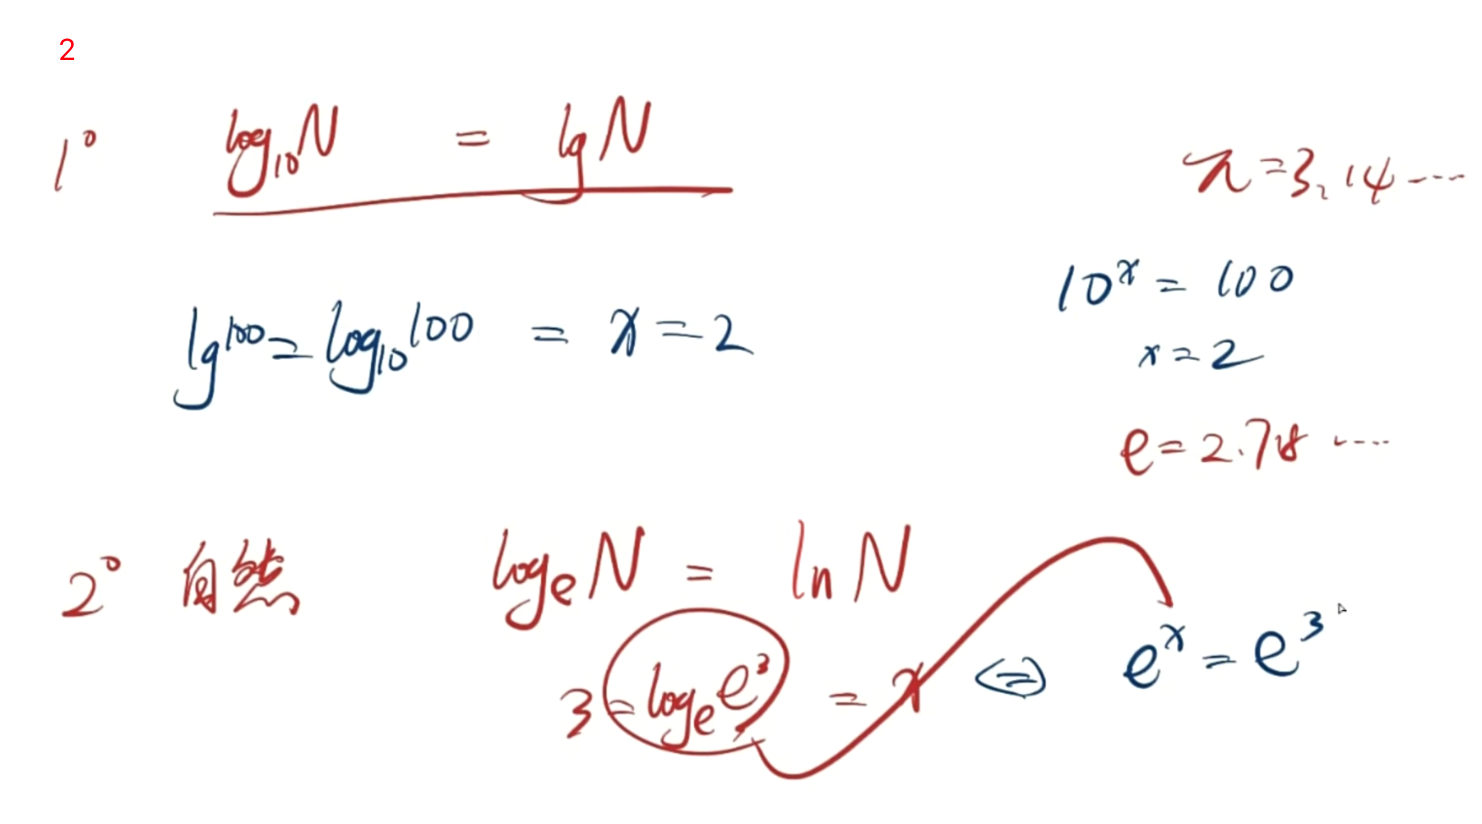 2
1° log₁₀N = lgN
π=3.14....
10ˣ = 100
lg100 = log₁₀100 = x = 2
x = 2
e = 2.718 ....
2° 自然 logₑN = lnN
3 = logₑe³ = x ⇔ eˣ = e³